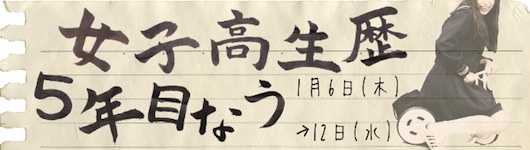 女子高生歴
5年目なう
1月6日(木)
→12日(水)